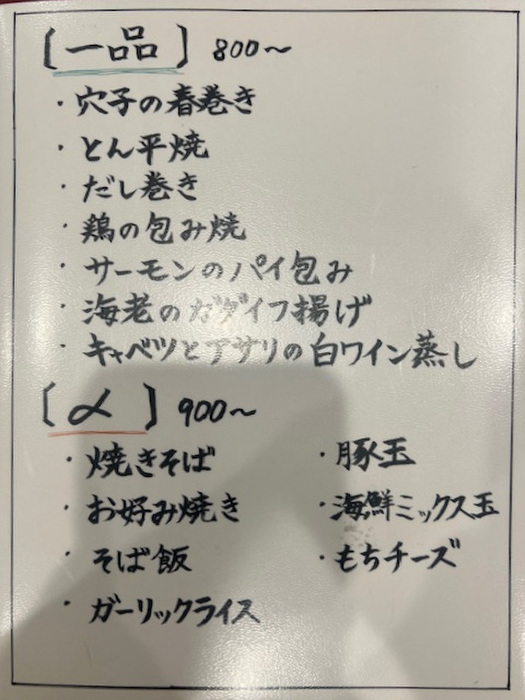 〔一品〕 800〜
・穴子の春巻き
・とん平焼
・だし巻き
・鶏の包み焼
・サーモンのパイ包み
・海老のカダイフ揚げ
・キャベツとアサリの白ワイン蒸し
〔〆〕 900〜
・焼きそば
・お好み焼き
・そば飯
・ガーリックライス
・豚玉
・海鮮ミックス玉
・もちチーズ